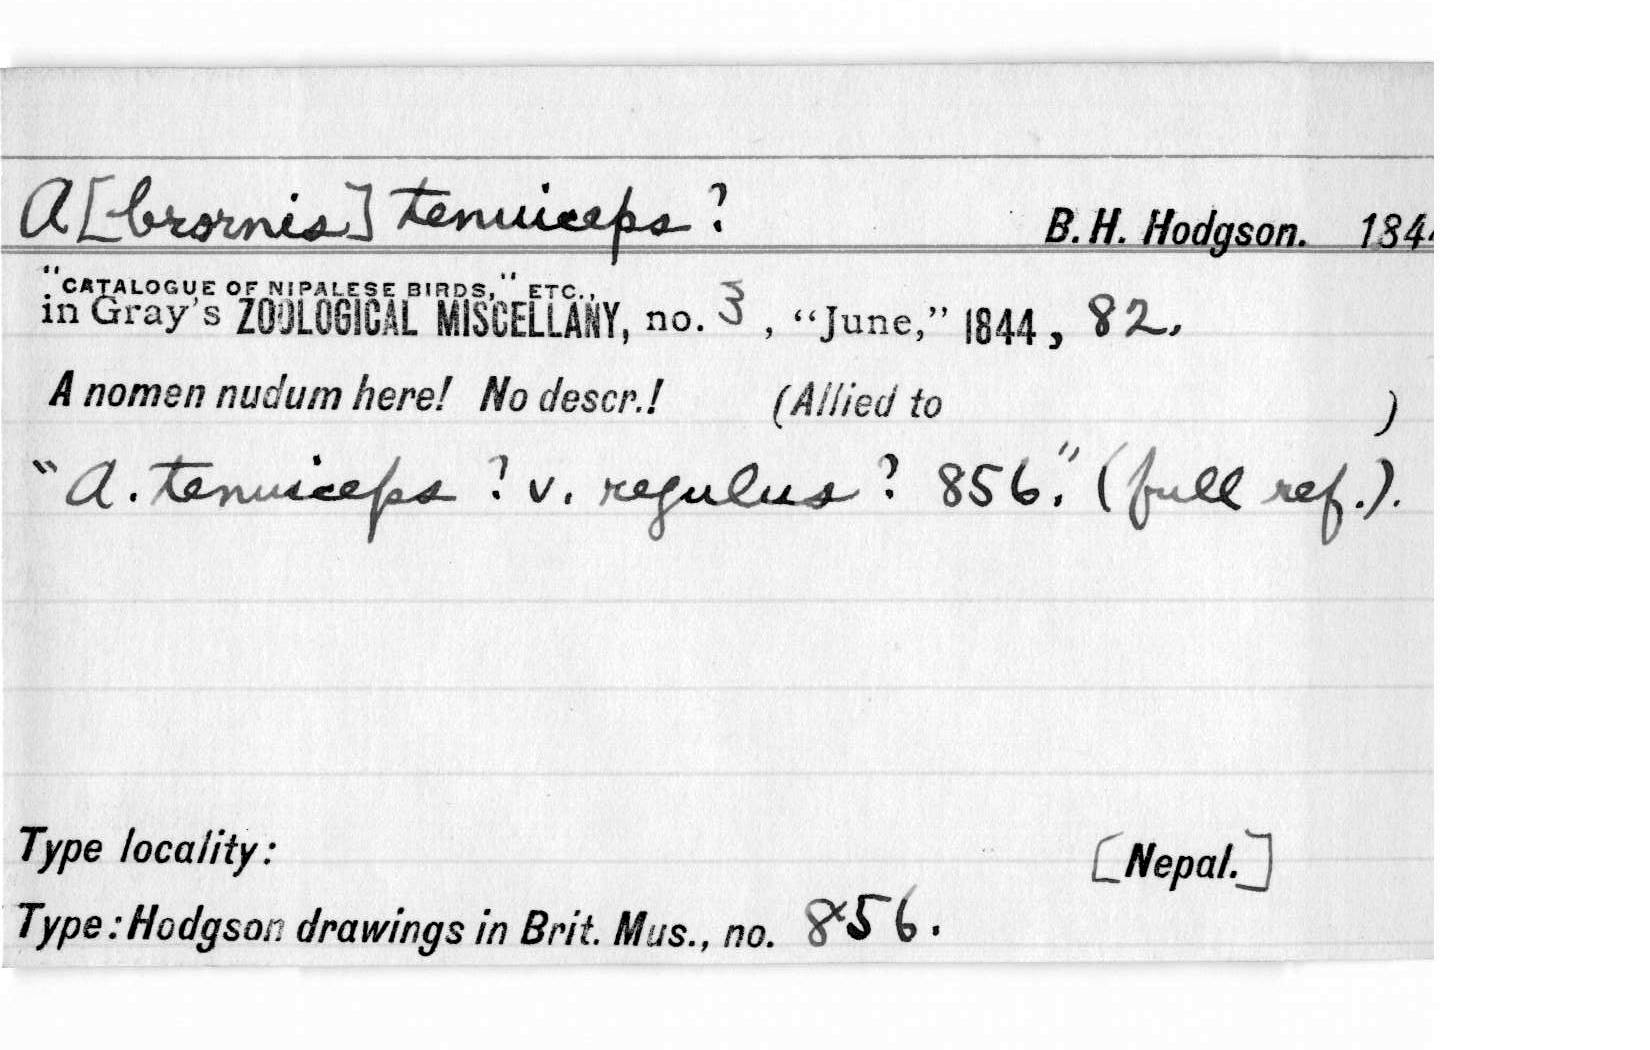 A[brornis] tenuiceps? B. H. Hodgson. 184
"CATALOGUE OF NIPALESE BIRDS," ETC.,
in Gray's ZOOLOGICAL MISCELLANY, no. 3, "June," 1844, 82.
A nomen nudum here! No descr.! (Allied to )
"A. tenuiceps? v. regulus? 856." (full ref.).
Type locality: [Nepal.]
Type: Hodgson drawings in Brit. Mus., no. 856.